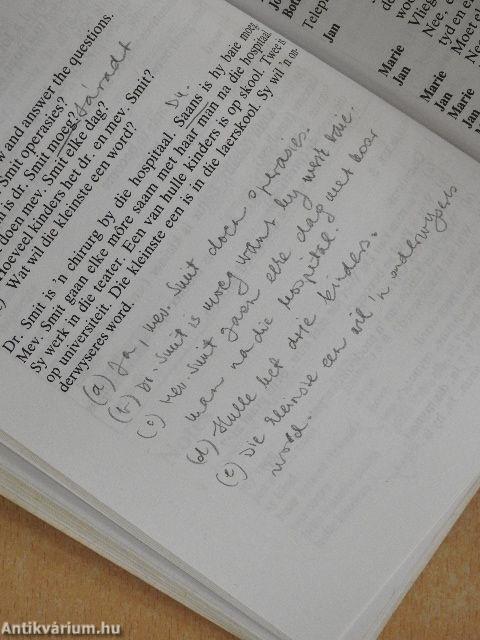 w and answer the questions.
Smit operasies?
n is dr. Smit moeg? fáradt
doen mev. Smit elke dag?
Hoeveel kinders het dr. en mev. Smit?
) Wat wil die kleinste een word?
Du.
Dr. Smit is 'n chirurg by die hospitaal. Saans is hy baie moeg.
Mev. Smit gaan elke môre saam met haar man na die hospitaal.
Sy werk in die teater. Een van hulle kinders is op skool. Twee is
op universiteit. Die kleinste een is in die laerskool. Sy wil 'n on-
derwyseres word.
(a) Ja, mev. Smit doen operasies.
(b) Dr. Smit is moeg want hy werk baie.
(c) Mev. Smit gaan elke dag met haar
man na die hospital.
(d) Hulle het drie kinders.
(e) Die kleinste een wil 'n onderwyseres
word.
Telep
Jan
Marie
Jan
Marie
Jan
Marie
Vlieg
Nee,
tyd en e
Moet e
Nee.
Antikvárium.hu